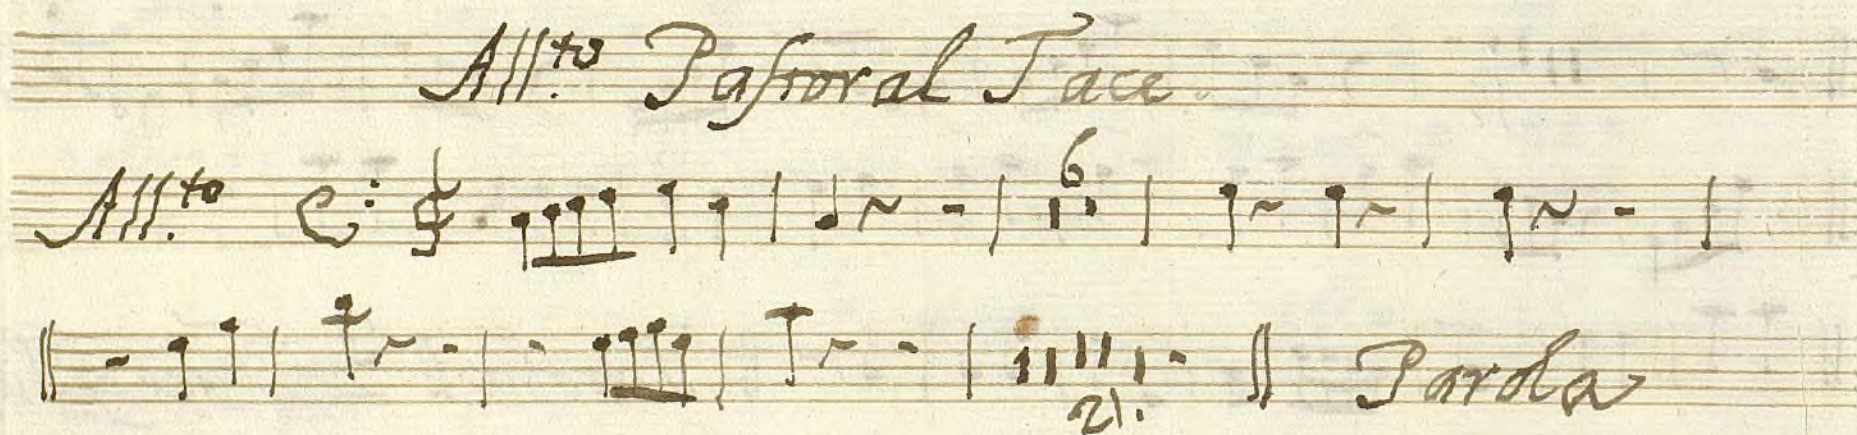 All.to Pastoral Tace.
All.to 6
21. Parola